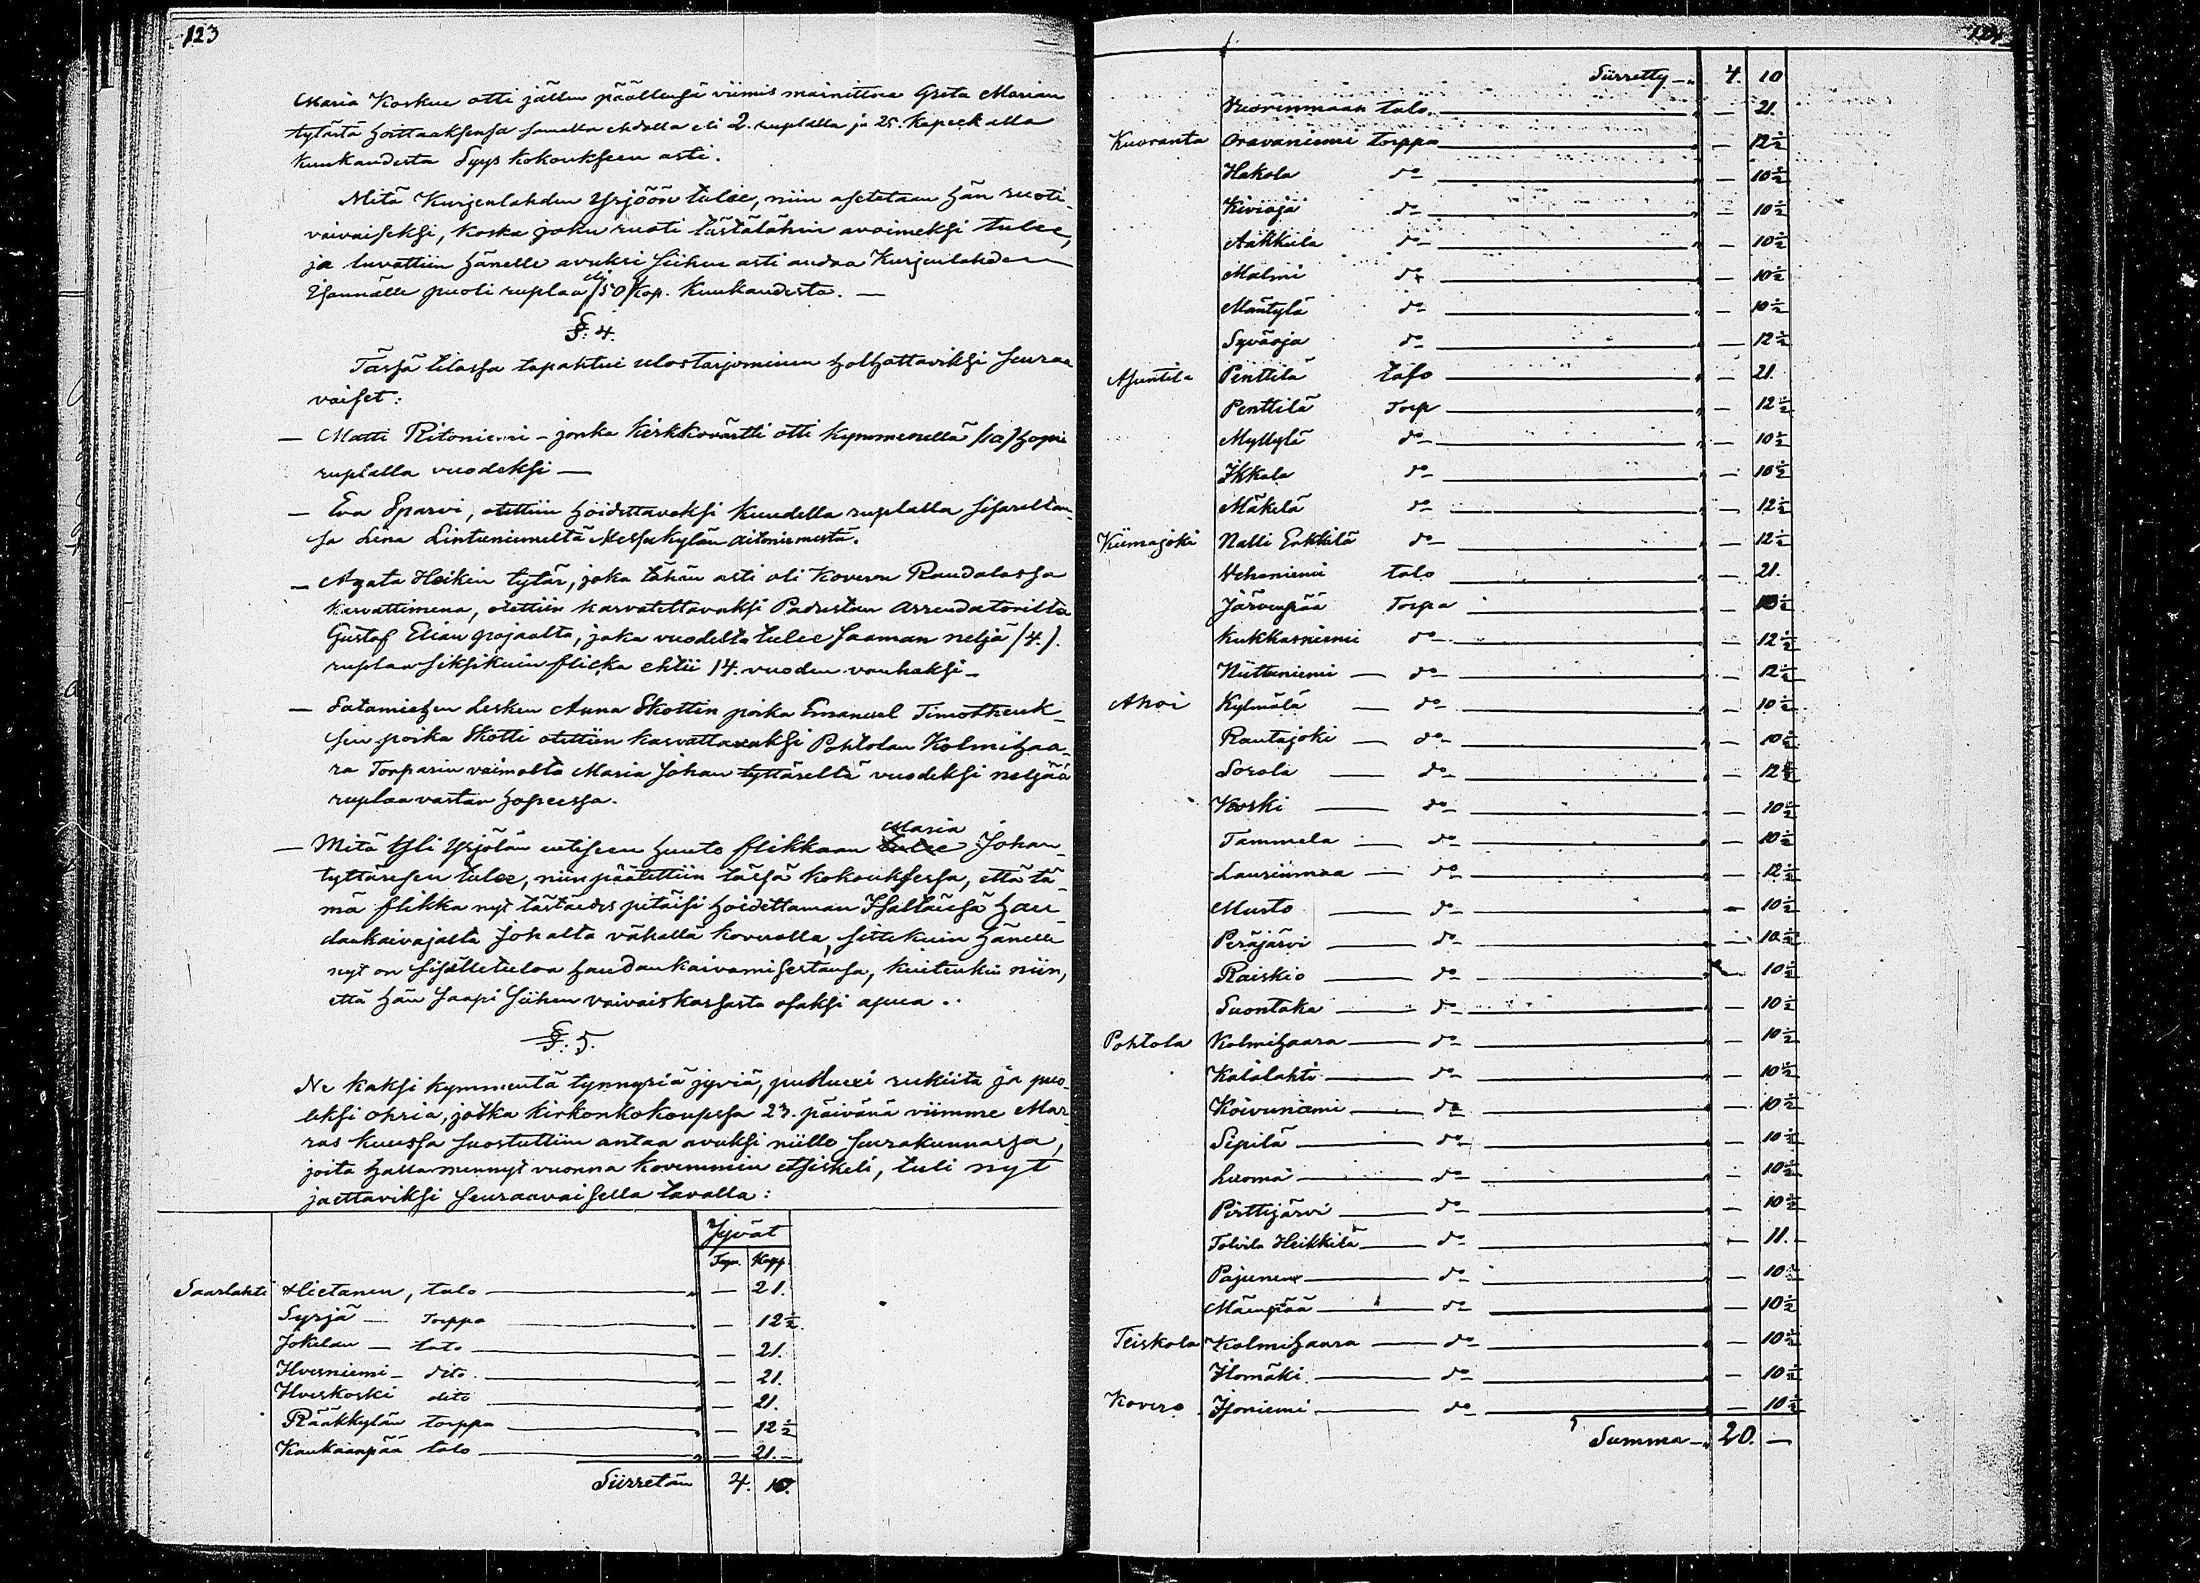 123
Maria Koskue otti jällen päällensä viimis mainittua Greta Marian
tytärtä hoittaaksensa samalla ehdolla eli 2. ruplalla ja 25. Kapeekalla
Kuukaudesta Syys Kokoukseen asti.
Mitä Kurjenlahden Yrjöön tulee, niin asetetaan hän ruoti-
vaivaiseksi, Koska joku ruoti tästälähin avoimeksi tulee,
ja luvattiin hänelle avuksi siihen asti andaa Kurjenlahden
Isännälle puoli ruplaa eli /50/ kop. Kuukaudesta. —
§: 4.
Tässä tilassa tapahtui ulostarjominen holhottaviksi seuraa
vaiset:
— Matti Ritoniemi – jonka Kirkkovärtti otti Kymmenellä /10/ hopia
ruplalla vuodeksi —
— Eva Sparvi, otettiin hoidettavaksi Kuudella ruplalla sisareltan-
sa Lena Lintuniemeltä Messukylän Aitoniemestä.
— Agata Heikin tytär, joka tähän asti oli Koveron Raudalassa
Kasvattimena, otettiin Kasvatettavaksi Padustan Arrendatorilta
Gustaf Elian pojaalta, joka vuodelta tulee saaman neljä /4/.
ruplaa siksikuin flicka ehtii 14. vuoden vanhaksi –
— Satamiehen Lesken Anna Skottin poika Emanuel Timotheuk-
sen poika Skotti otettiin kasvattavaksi Pohtolan Kolmihaa-
ra Torparin vaimolta Maria Johan tyttäreltä vuodeksi neljää
ruplaa vastan hopeessa.
— Mitä Yli Yrjölän entiseen huuto flikkaan Maria Johan-
tyttäresen tulee, niin päätettiin tässä Kokouksessa, että tä-
mä flikka nyt tästäedes pitäisi hoidettaman Isältänsä Hau-
dankaivajalta Johalta vähällä Koverolla, sittekuin hänelle
nyt on sisälletuloa haudankaivamisestansa, kuitenkin niin,
että hän saapi siihen vaivaiskassasta osaksi apua..
§: 5.
Ne kaksi kymmentä tynnyriä jyviä, puolueksi rukiita ja puo-
leksi ohria, jotka kirkonkokouxessa 23. päivänä viimme Mar-
ras kuussa suostuttiin antaa avuksi niille seurakunnassa,
joita halla mennyt vuonna kovemmin etsiskeli, tuli nyt
jaettaviksi seuraavaisella tavalla:
Jyvät
Tyn. Kapp.
Saarlahti Hietanen, talo — 21.
Syrjä — Torppa — 12½.
Jokelan — talo — 21.
Ilvesniemi – dito — 21.
Ilveskoski dito — 21.
Rääkkylän torppa — 12½
Kaukaanpää talo — 21.—
Siirretän 4. 10.
124
Siirretty — 4. 10
Vuorenmaan talo. — 21.
Kuoranta Oravaniemi torppa — 12½
Hakola do — 10½
Kivioja do — 10½
Aakkula do — 10½
Malmi do — 10½
Mäntylä do — 10½
Syväoja do — 12½
Asuntila Penttilä talo — 21.
Penttilä Torp — 12½
Myllylä do — 10½
Ikkala do — 10½
Mäkelä do — 12½
Kiimajoki Nalli Erkkilä do — 12½
Vehoniemi talo — 21.
Järvenpää Torpa — 10½
Kukkasniemi do — 12½
Niittuniemi — do — 12½
Ahoi Kylmälä — do — 10½
Rautajoki — do — 10½
Sorola — do — 12½
Koski — do — 10½
Tammela — do — 10½
Lauriinmaa — do — 12½
Musto — do — 10½
Peräjärvi — do — 10½
Raiskio — do — 10½
Suontaka — do — 10½
Pohtola Kolmihaara — do — 10½
Kalalahti — do — 10½
Koivuniemi — do — 10½
Sepilä — do — 10½
Luoma — do — 10½
Pirttijärvi — do — 10½
Tolvila Heikkilä — do — 11.
Pajunen — do — 10½
Mäenpää — do — 10½
Teiskola Kolmihaara — do — 10½
Ilomäki — do — 10½
Kovero Isoniemi — do — 10½
Summa — 20. —